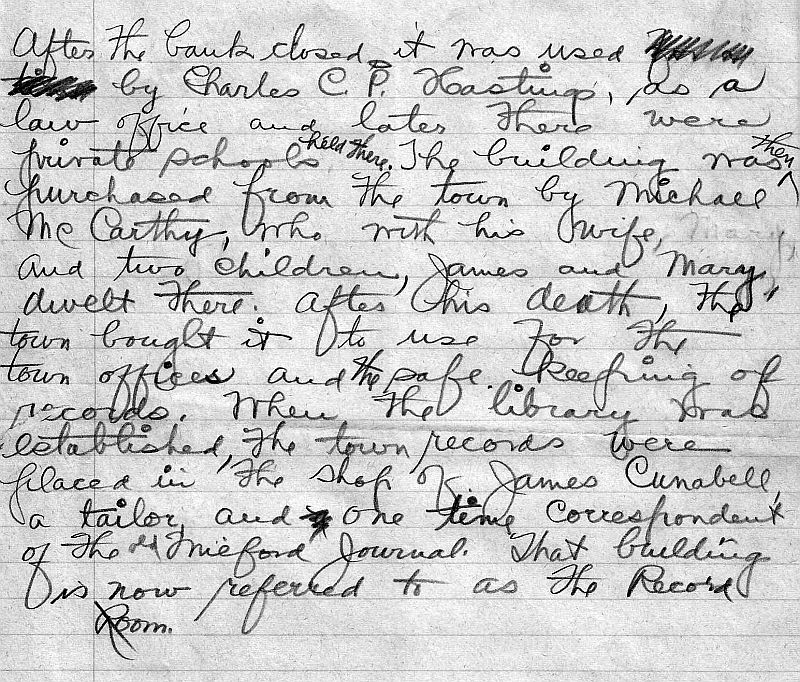 After the bank closed, it was used
by Charles C. P. Hastings, as a
law office and later there were
private schools held there. The building was then
purchased from the town by Michael
Mc Carthy, who with his wife, Mary,
and two children, James and Mary,
dwelt there. After his death, the
town bought it to use for the
town offices and the safe keeping of
records. When the library was
established, the town records were
placed in the shop of James Cunabell,
a tailor, and one time correspondent
of the Milford Journal. That building
is now referred to as the Record
Room.